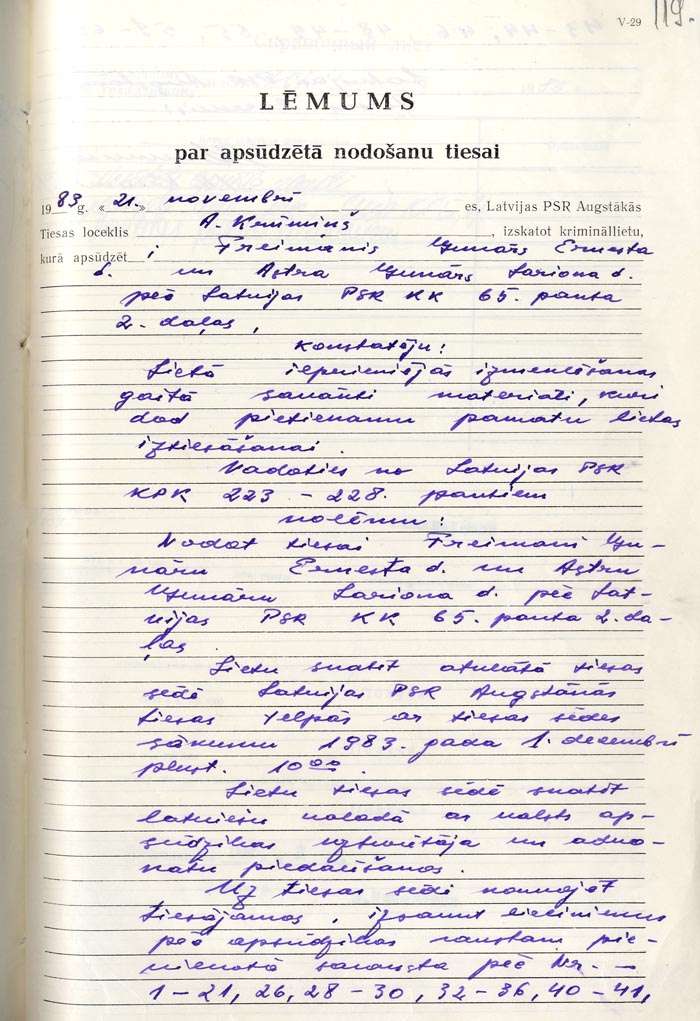 V-29 119.
LĒMUMS
par apsūdzētā nodošanu tiesai
1983 g. «21.» novembrī es, Latvijas PSR Augstākās
Tiesas loceklis A. Krūmiņš, izskatot krimināllietu,
kurā apsūdzēt i Freimanis Gunārs Ernesta
d. un Astra Gunārs Lariona d.
pēc Latvijas PSR KK 65. panta
2. daļas,
konstatēju:
Lietā iepriekšējās izmeklēšanas
gaitā savākti materiāli, kuri
dod pietiekamu pamatu lietas
iztiesāšanai.
Vadoties no Latvijas PSR
KPK 223 – 228. pantiem
nolēmu:
Nodot tiesai Freimani Gu-
nāru Ernesta d. un Astru
Gunāru Lariona d. pēc Lat-
vijas PSR KK 65. panta 2. da-
ļas.
Lietu skatīt atklātā tiesas
sēdē Latvijas PSR Augstākās
tiesas telpās ar tiesas sēdes
sākumu 1983. gada 1. decembrī
plkst. 10⁰⁰.
Lietu tiesas sēdē skatīt
latviešu valodā ar valsts ap-
sūdzības uzturētāja un advo-
kātu piedalīšanos.
Uz tiesas sēdi nonvojēt
tiesājamos, izsaukt lieciniekus
pēc apsūdzības rakstam pie-
vienotā saraksta pēc Nr. –
1–21, 26, 28–30, 32–36, 40–41,